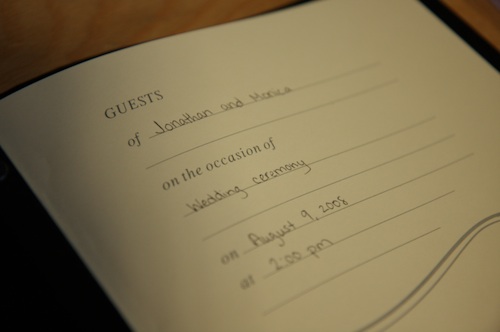 GUESTS
of Jonathan and Monica
on the occasion of
Wedding ceremony
on August 9, 2008
at 2:00 pm